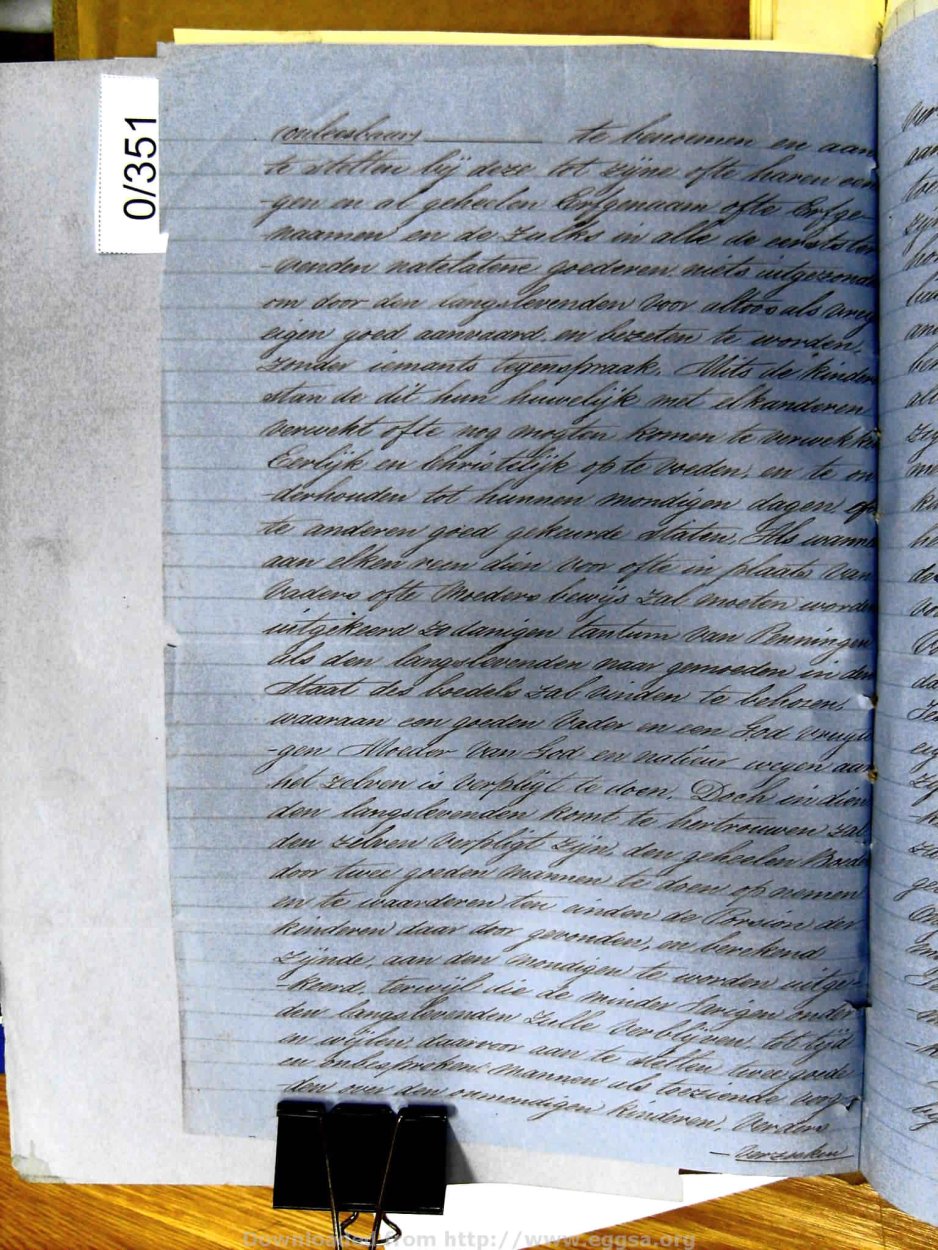 0/351
te benoemen en aan
te stellen bij deze tot zijne ofte haren een
-gen en al geheelen Erfgenaam ofte Erfge-
naamen en de zulks in alle de eerstster
-venden natelatene goederen niets uitgezond
om door den langslevenden voor altoos als vrug
eigen goed aanvaard en bezeten te worden,
zonder iemants tegenspraak, Mits de Kinder
staande dit hun huwelijk met elkanderen
verwekt ofte nog mogten komen te verwekken
Eerlijk en Christelijk op te voeden, en te on
-derhouden tot hunnen mondigen dagen of
te anderen goed gekeurde Staten, Als wanne
aan elken een dien voor ofte in plaats van
Vaders ofte Moeders bewijs zal moeten worden
uitgekeerd zodanigen tantum van Penningen
Als den langslevenden naar gemoeden in den
Staat des boedels zal vinden te behoren,
waaraan een goeden Vader en een God vruge
-gen Moeder van God en natuur wegen aan
het zelven is verpligt te doen, Doch indien
den langslevenden komt te hertrouwen zal
den zelven verpligt zijn, den geheelen Boedel
door twee goeden mannen te doen op nemen
en te waarderen ten einden de Porsion der
kinderen daar door gevonden, en berekend
zijnde, aan den mondigen te worden uitge-
-keerd, terwijl die de minder Jarigen onder
den langslevenden zulle verblijven, tot tijd
en wijlen, daarvoor aan te stellen twee goede
en onbesproken mannen als toeziende voog-
den over den onmondigen kinderen, Verders
— Verzoeken
Downloaded from http://www.eggsa.org